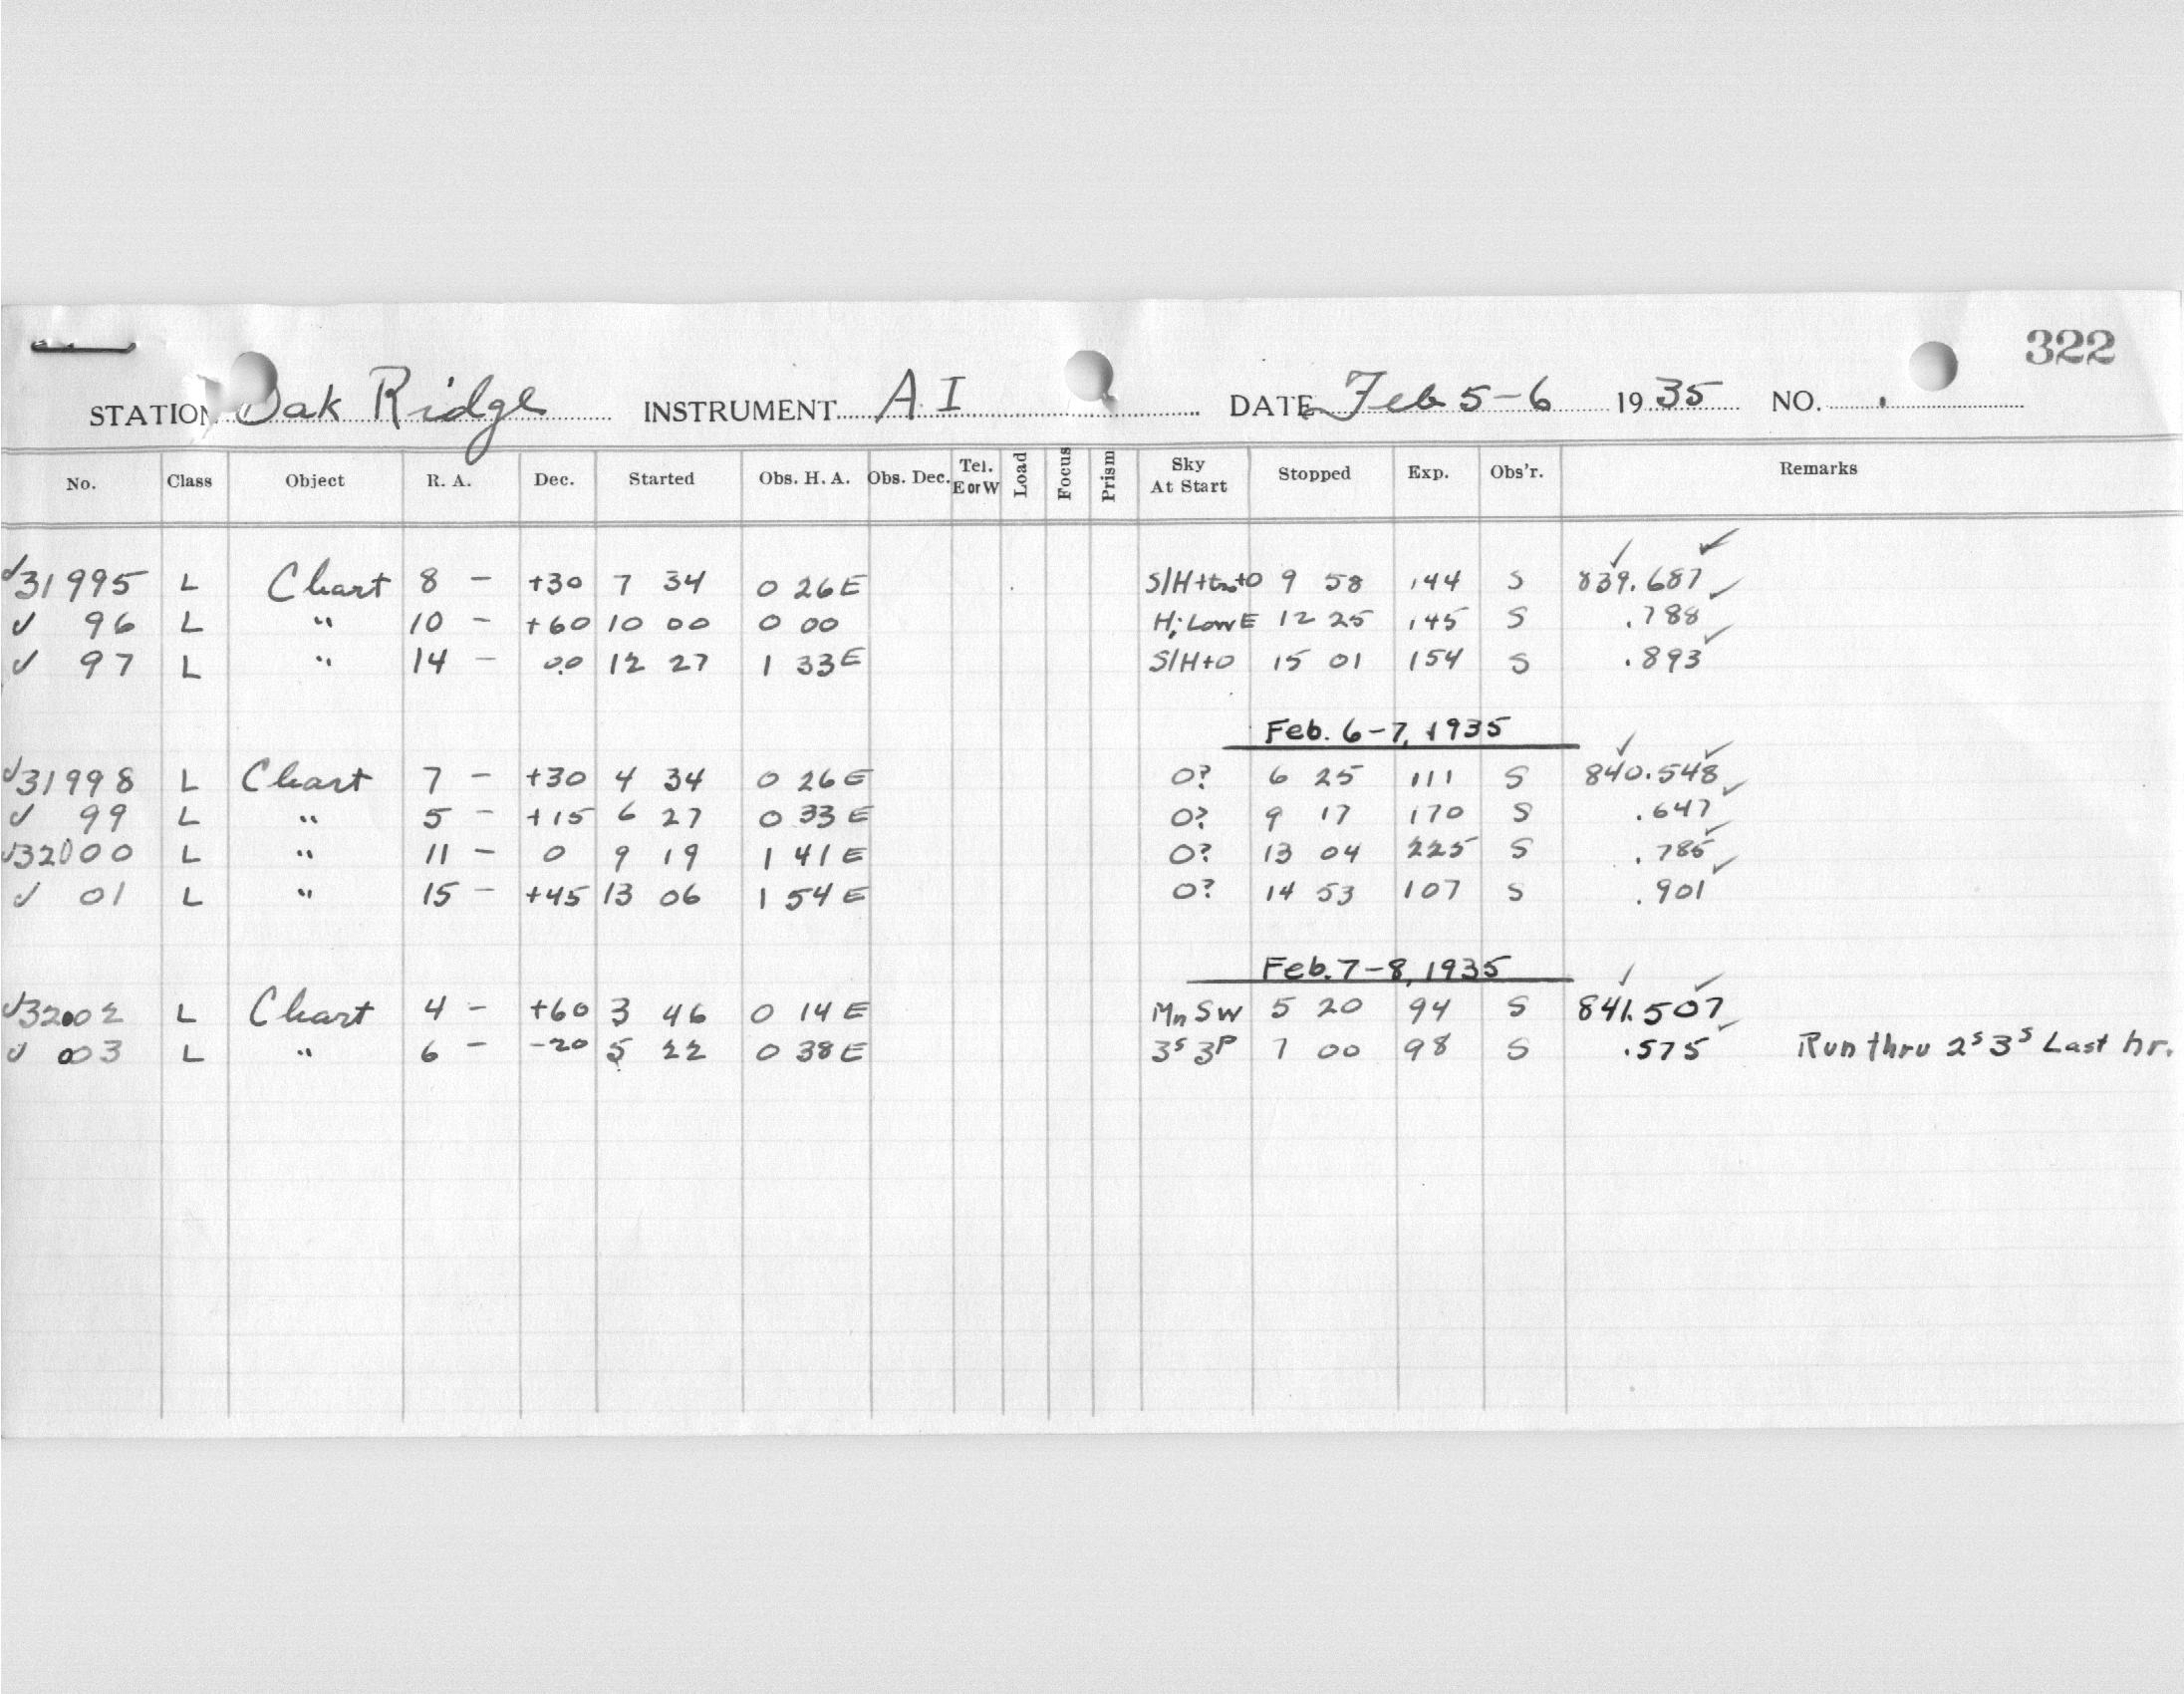 322
STATION Oak Ridge INSTRUMENT A I DATE Feb 5-6 1935 NO.
No. Class Object R. A. Dec. Started Obs. H. A. Obs. Dec. Tel. E or W Load Focus Prism Sky At Start Stopped Exp. Obs'r. Remarks
✓31995 L Chart 8 - +30 7 34 0 26 E 9 58 144 S 839.687
✓ 96 L " 10 - +60 10 00 0 00 H; Low E 12 25 145 S .788
✓ 97 L " 14 - 00 12 27 1 33 E S/H+O 15 01 154 S .893
Feb. 6-7, 1935
✓31998 L Chart 7 - +30 4 34 0 26 E O? 6 25 111 S 840.548
✓ 99 L " 5 - +15 6 27 0 33 E O? 9 17 170 S .647
✓32000 L " 11 - 0 9 19 1 41 E O? 13 04 225 S .785
✓ 01 L " 15 - +45 13 06 1 54 E O? 14 53 107 S .901
Feb. 7-8, 1935
✓32002 L Chart 4 - +60 3 46 0 14 E Mn SW 5 20 94 S 841.507
✓ 003 L " 6 - -20 5 22 0 38 E 3ˢ 3ᴾ 7 00 98 S .575 Run thru 2ˢ 3ˢ Last hr.